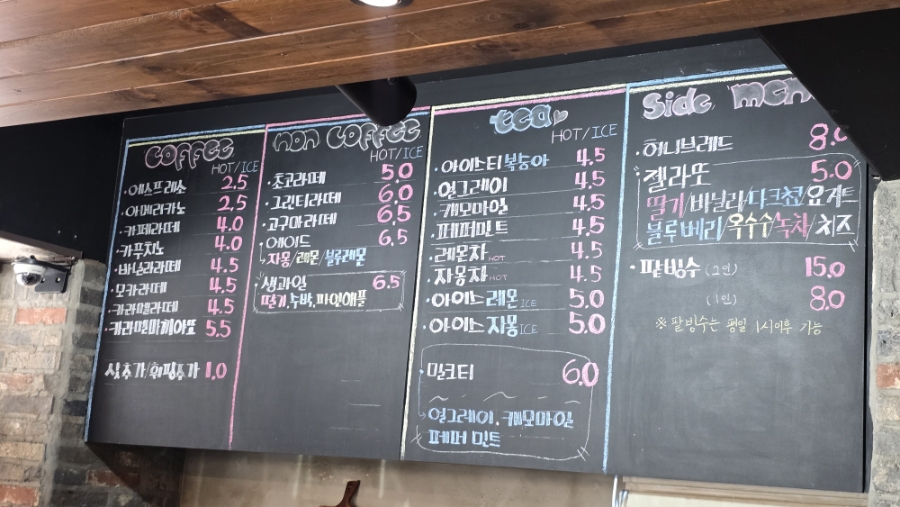 coffee
HOT/ICE
· 에스프레소 2.5
· 아메리카노 2.5
· 카페라떼 4.0
· 카푸치노 4.0
· 바닐라라떼 4.5
· 모카라떼 4.5
· 카라멜라떼 4.5
· 카라멜마끼아또 5.5
샷추가/휘핑추가 1.0
non coffee
HOT/ICE
· 초코라떼 5.0
· 그린티라떼 6.0
· 고구마라떼 6.5
· 에이드 6.5
자몽/레몬/블루레몬
· 생과일 6.5
딸기, 누바, 파인애플
tea
HOT/ICE
· 아이스티복숭아 4.5
· 얼그레이 4.5
· 캐모마일 4.5
· 페퍼민트 4.5
· 레몬차 HOT 4.5
· 자몽차 HOT 4.5
· 아이스레몬 ICE 5.0
· 아이스자몽 ICE 5.0
· 밀크티 6.0
얼그레이, 캐모마일
페퍼민트
Side men
· 허니브레드 8.0
· 젤라또 5.0
딸기/바닐라/다크초코/요거트
블루베리/옥수수/녹차/치즈
· 팥빙수 (2인) 15.0
(1인) 8.0
※ 팥빙수는 평일 1시이후 가능